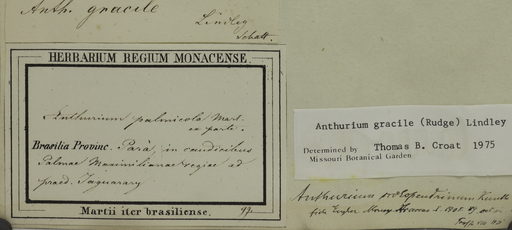 Anth. gracile
Lindley
Schott.
HERBARIUM REGIUM MONACENSE.
Anthurium palmicola Mart.
ex parte.
Brasilia Provinc. Parà, in caudicibus
Palmae Maximilianae regiae ad
praed. Jaguarary
Martii iter brasiliense.
Anthurium gracile (Rudge) Lindley
Determined by Thomas B. Croat 1975
Missouri Botanical Garden
Anthurium scolopendrinum Kunth
fide Engler